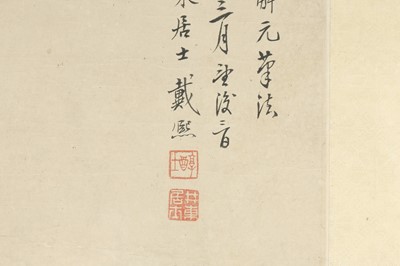 解元筆法
三月望後三日
居士戴熙
醇士